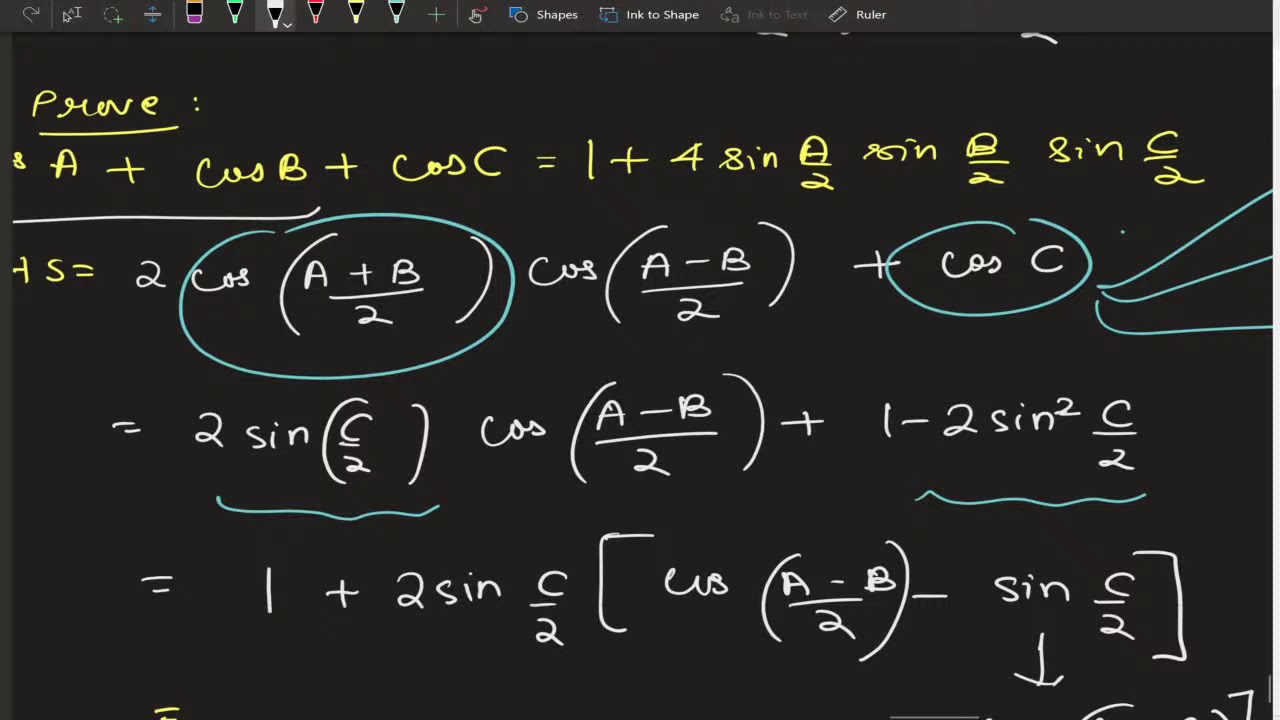 Shapes Ink to Shape Ink to Text Ruler
Prove :
s A + cosB + cosC = 1 + 4 sin A/2 sin B/2 sin C/2
HS = 2 cos (A + B / 2) cos (A - B / 2) + cos C
= 2 sin (C/2) cos (A - B / 2) + 1 - 2 sin² C/2
= 1 + 2 sin C/2 [ cos (A - B / 2) - sin C/2 ]